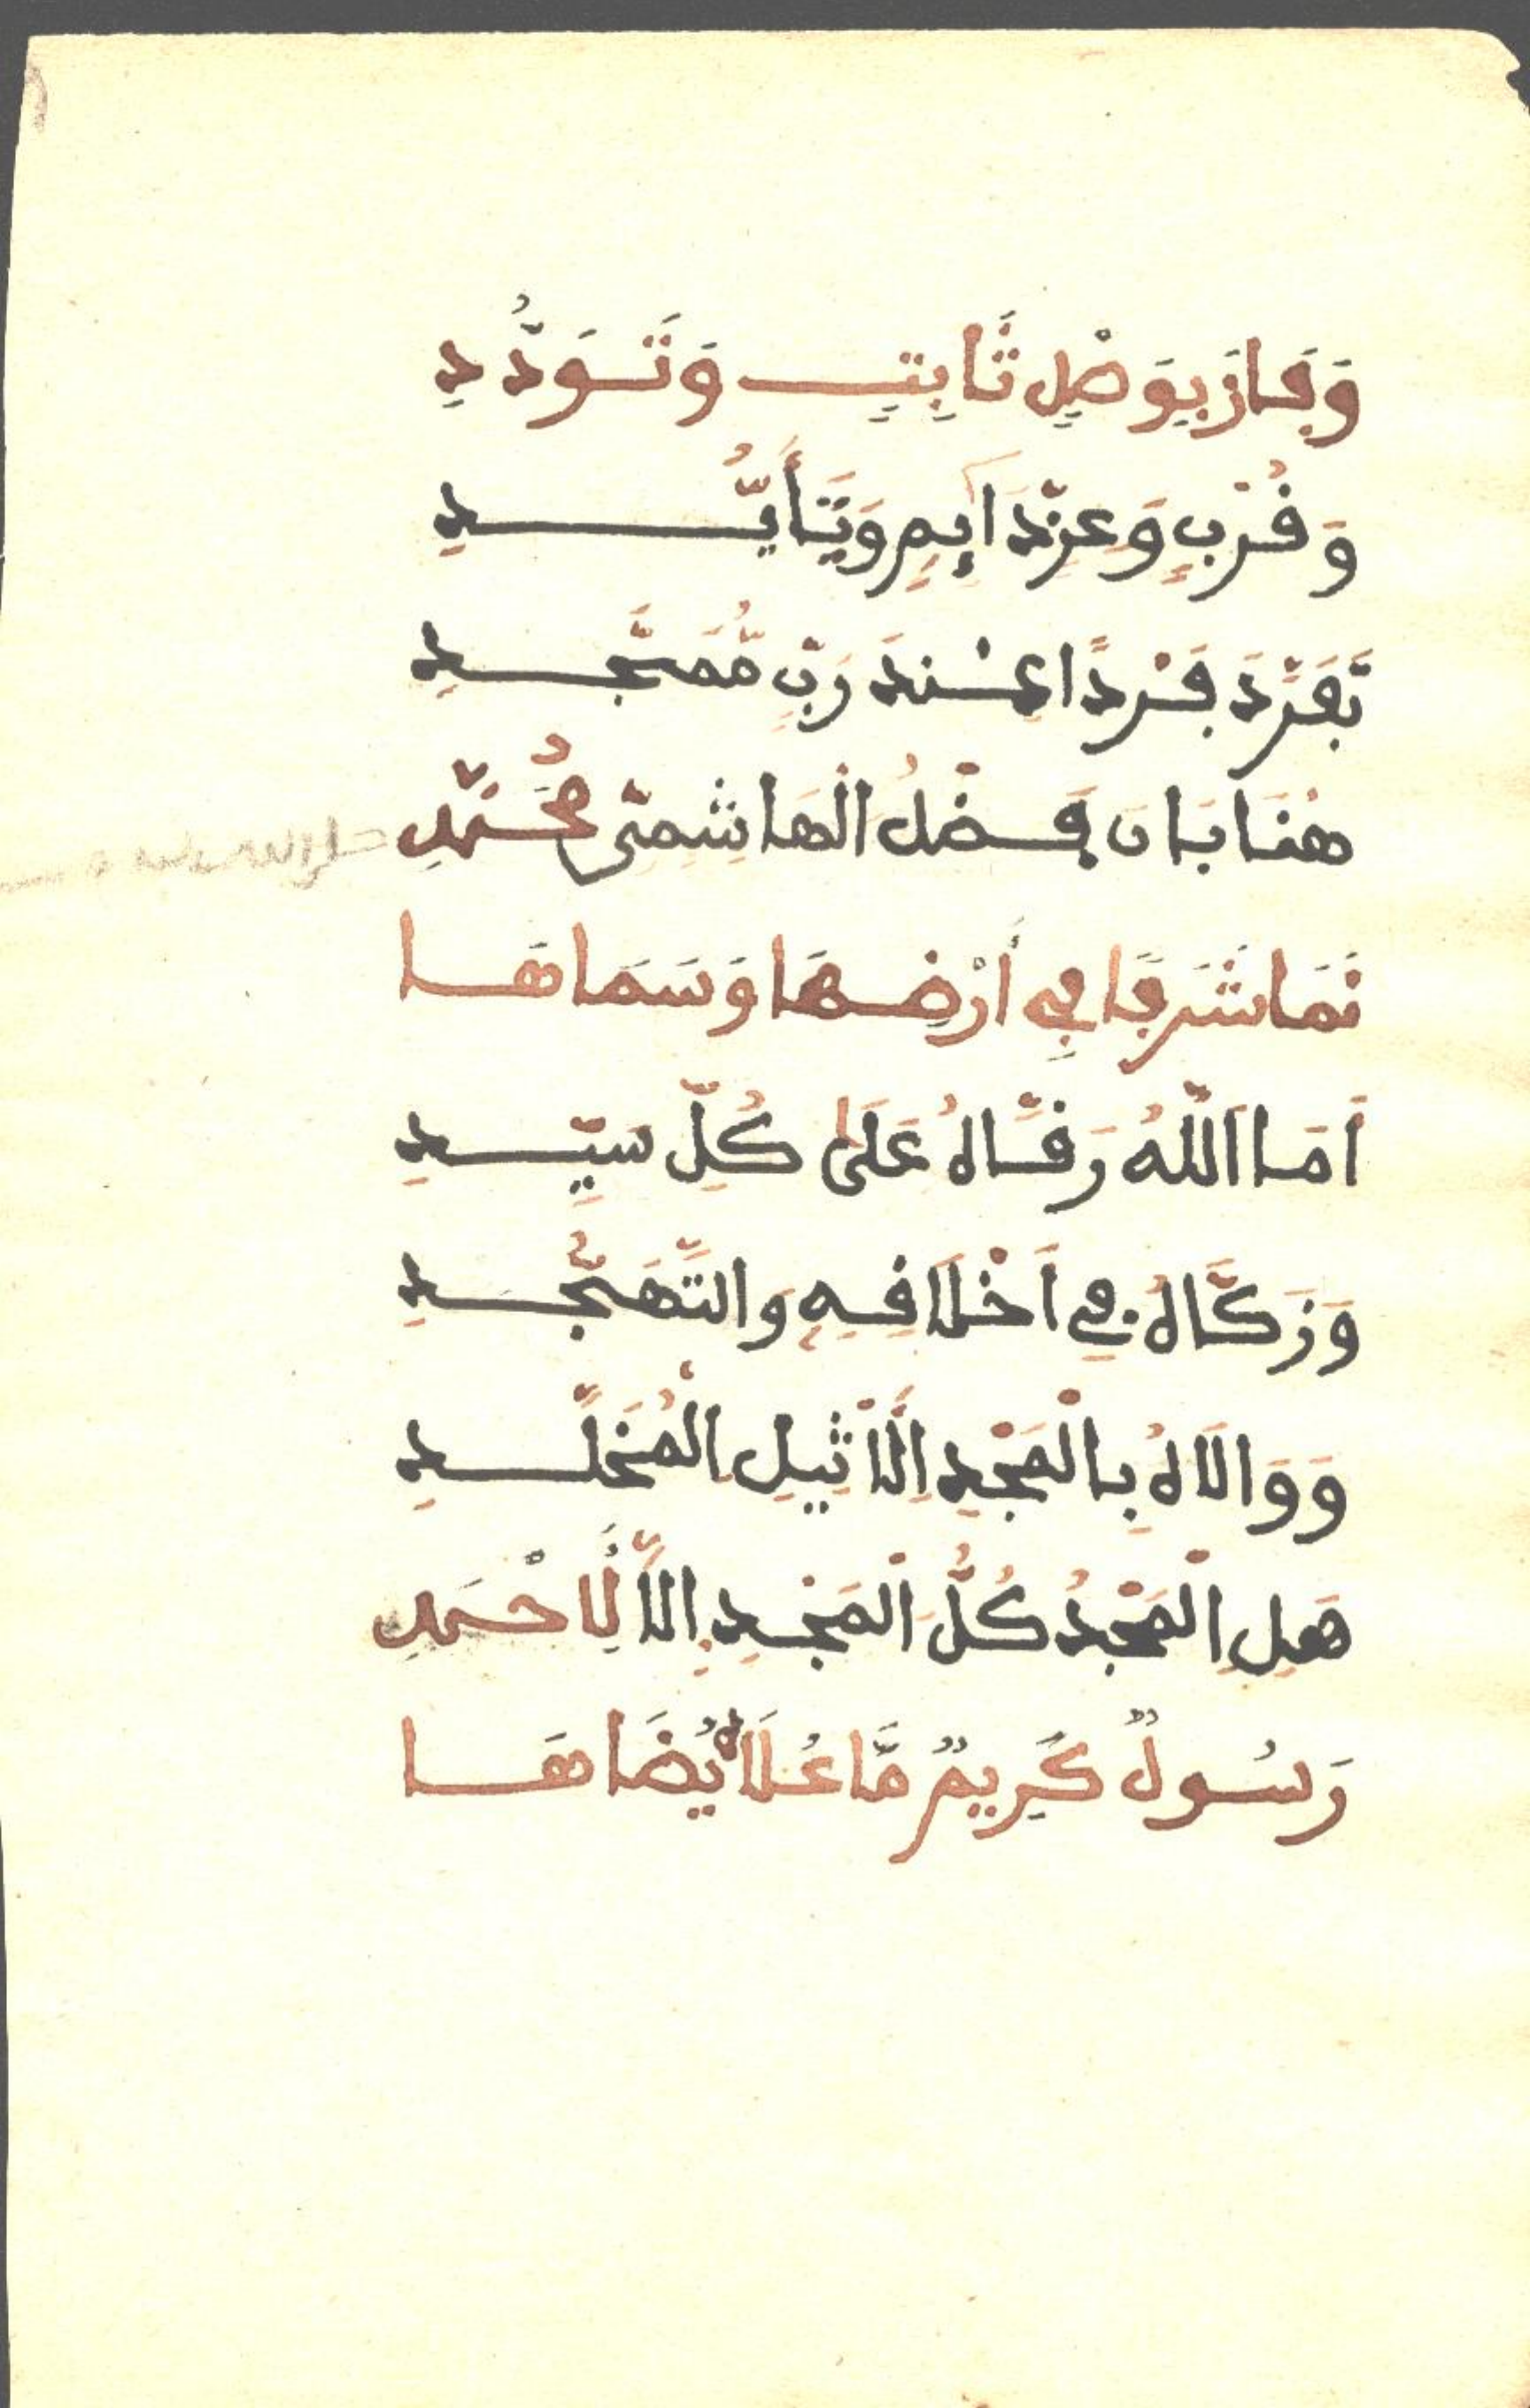 وَفَازَ بِوَصْلٍ ثَابِتٍ وَتَوَدُّدِ
وَقُرْبٍ وَعِزٍّ دَائِمٍ وَتَأَيُّدِ
تَفَرَّدَ فَرْدًا عِنْدَ رَبٍّ مُّمَجَّدِ
هُنَا بَانَ فَضْلُ الْهَاشِمِيِّ مُحَمَّدِ
صلى الله عليه و
نَمَا شَرَفًا فِي أَرْضِهَا وَسَمَاهَا
اَمَا اَللَّهُ رَقَّاهُ عَلَى كُلِّ سَيِّدِ
وَزَكَّاهُ فِي اَخْلَاقِهِ وَالتَّهَجُّدِ
وَوَالَاهُ بِالْمَجْدِ الْأَثِيلِ الْمُخَلَّدِ
هَلِ الْمَجْدُ كُلُّ الْمَجْدِ إِلَّا لِأَحْمَدِ
رَسُولٌ كَرِيمٌ مَّا عُلَاهُ يُضَاهَا